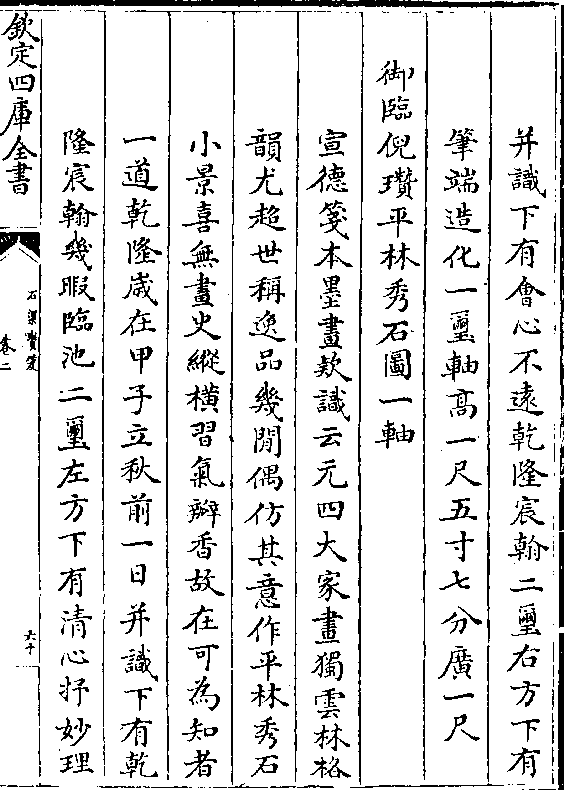 并識下有會心不遠乾隆宸翰二璽右方下有
筆端造化一璽軸高一尺五寸七分廣一尺
御臨倪瓚平林秀石圖一軸
宣德箋本墨畫欵識云元四大家畫獨雲林格
韻尤超世稱逸品幾閒偶仿其意作平林秀石
小景喜無畫史縱橫習氣瓣香故在可為知者
一道乾隆歲在甲子立秋前一日并識下有乾
隆宸翰幾暇臨池二璽左方下有清心抒妙理
欽定四庫全書
石渠寶笈
卷二
六十